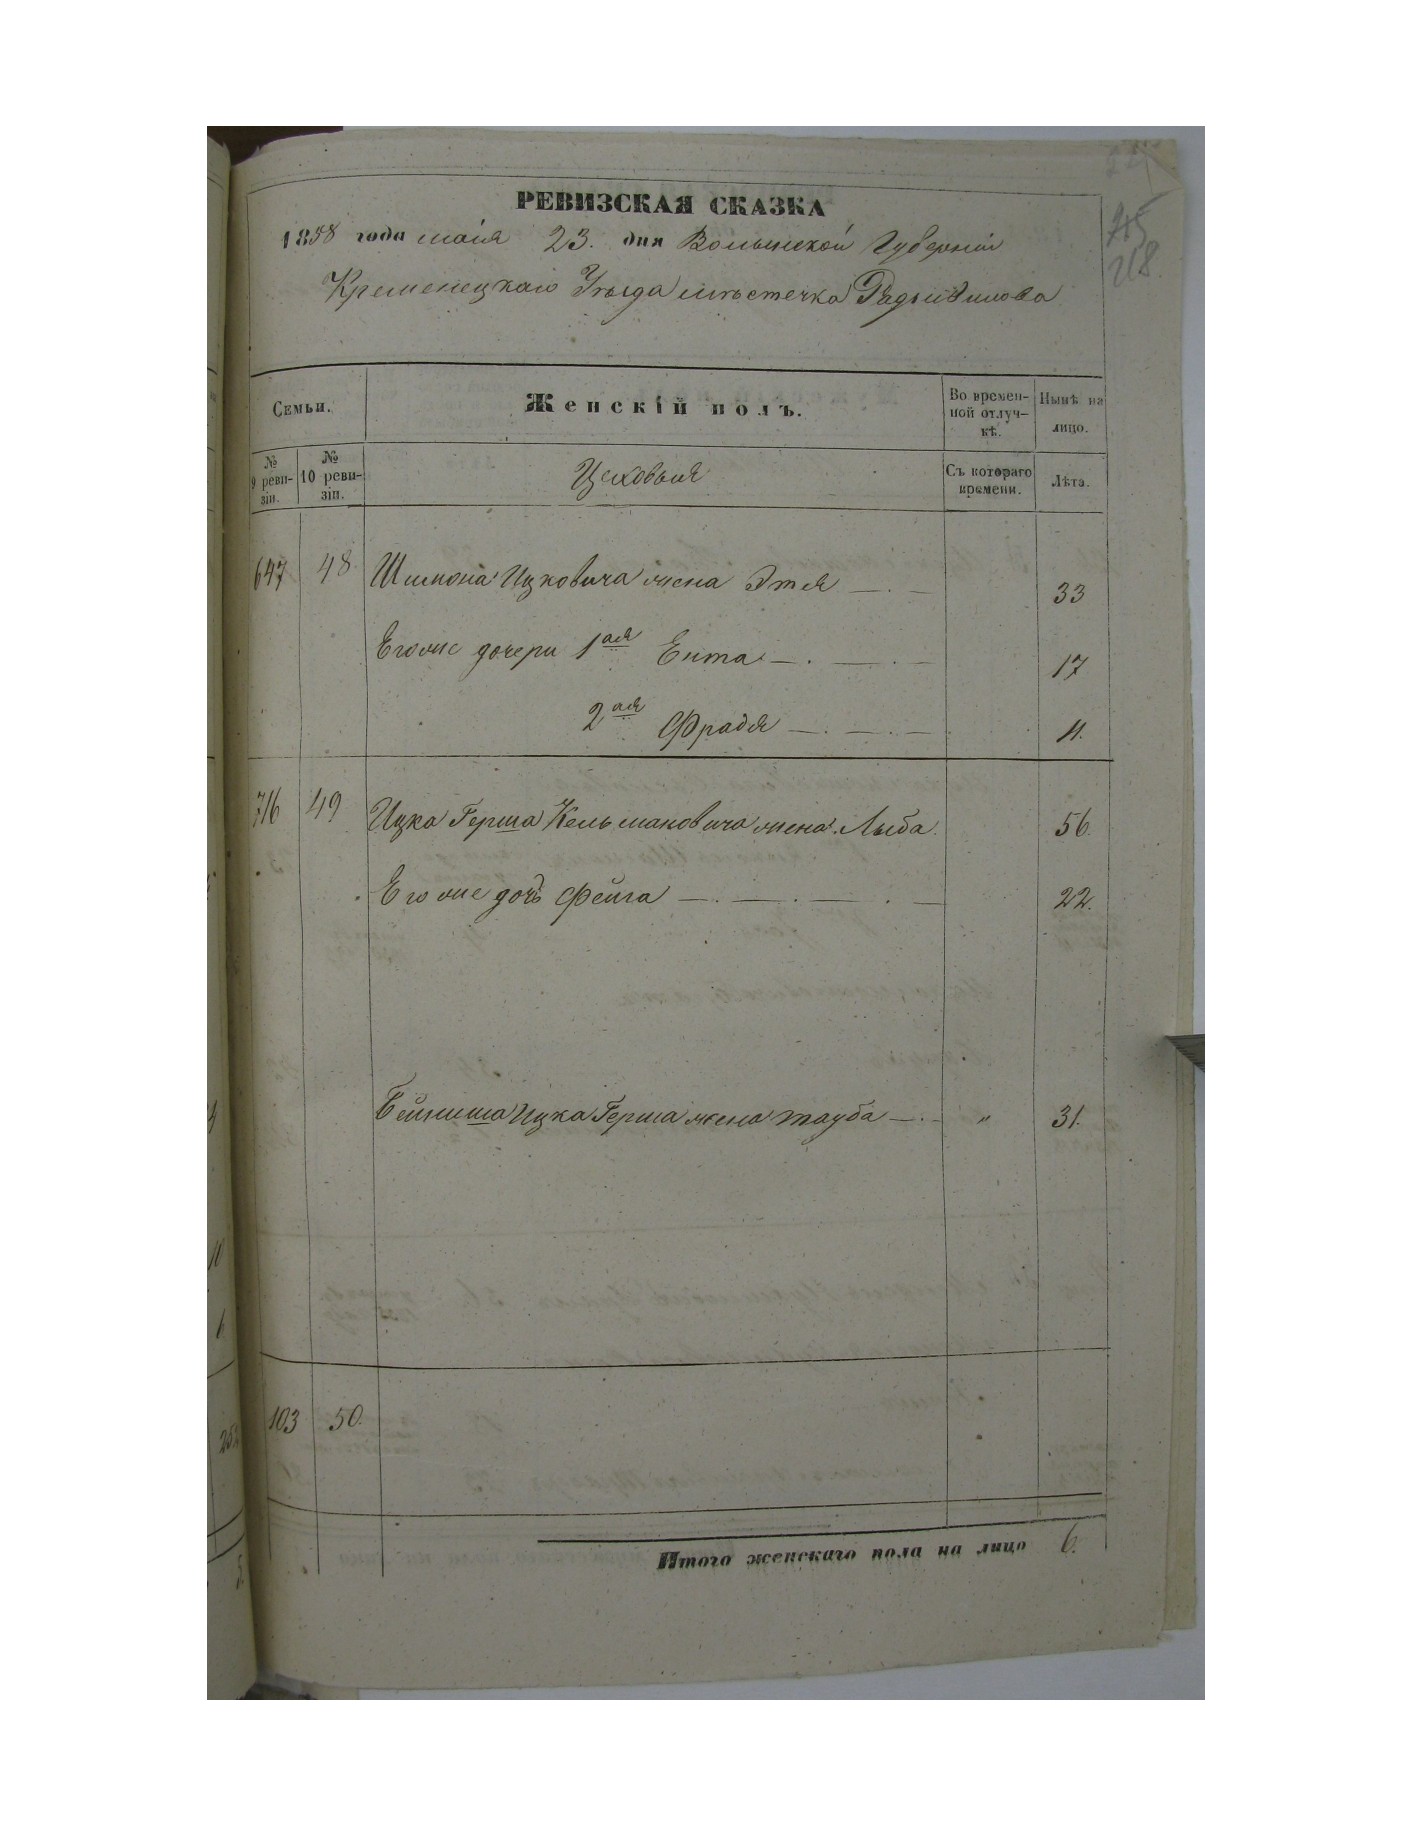 РЕВИЗСКАЯ СКАЗКА
1858 года маія 23. дня Волынской Губерніи
Кременецкаго Уѣзда мѣстечка Радзивилова
215
218.
Семьи.
Женскій полъ.
Во времен-
ной отлуч-
кѣ.
Нынѣ на
лицо.
№
9 реви-
зіи.
№
10 реви-
зіи.
Цеховыя
Съ котораго
времени.
Лѣта.
647 48 Шимона Ицковича жена Этя — . — 33
Его же дочери 1ая Ента — . — . — 17
2ая Фрадя — . — . — 11.
716 49 Ицка Герша Кельмановича жена Лыба. 56.
Его же дочь Фейга — . — . — . — 22.
Ицка Герша жена Тауба — . - " 31.
103 50.
Итого женскаго пола на лицо 6.